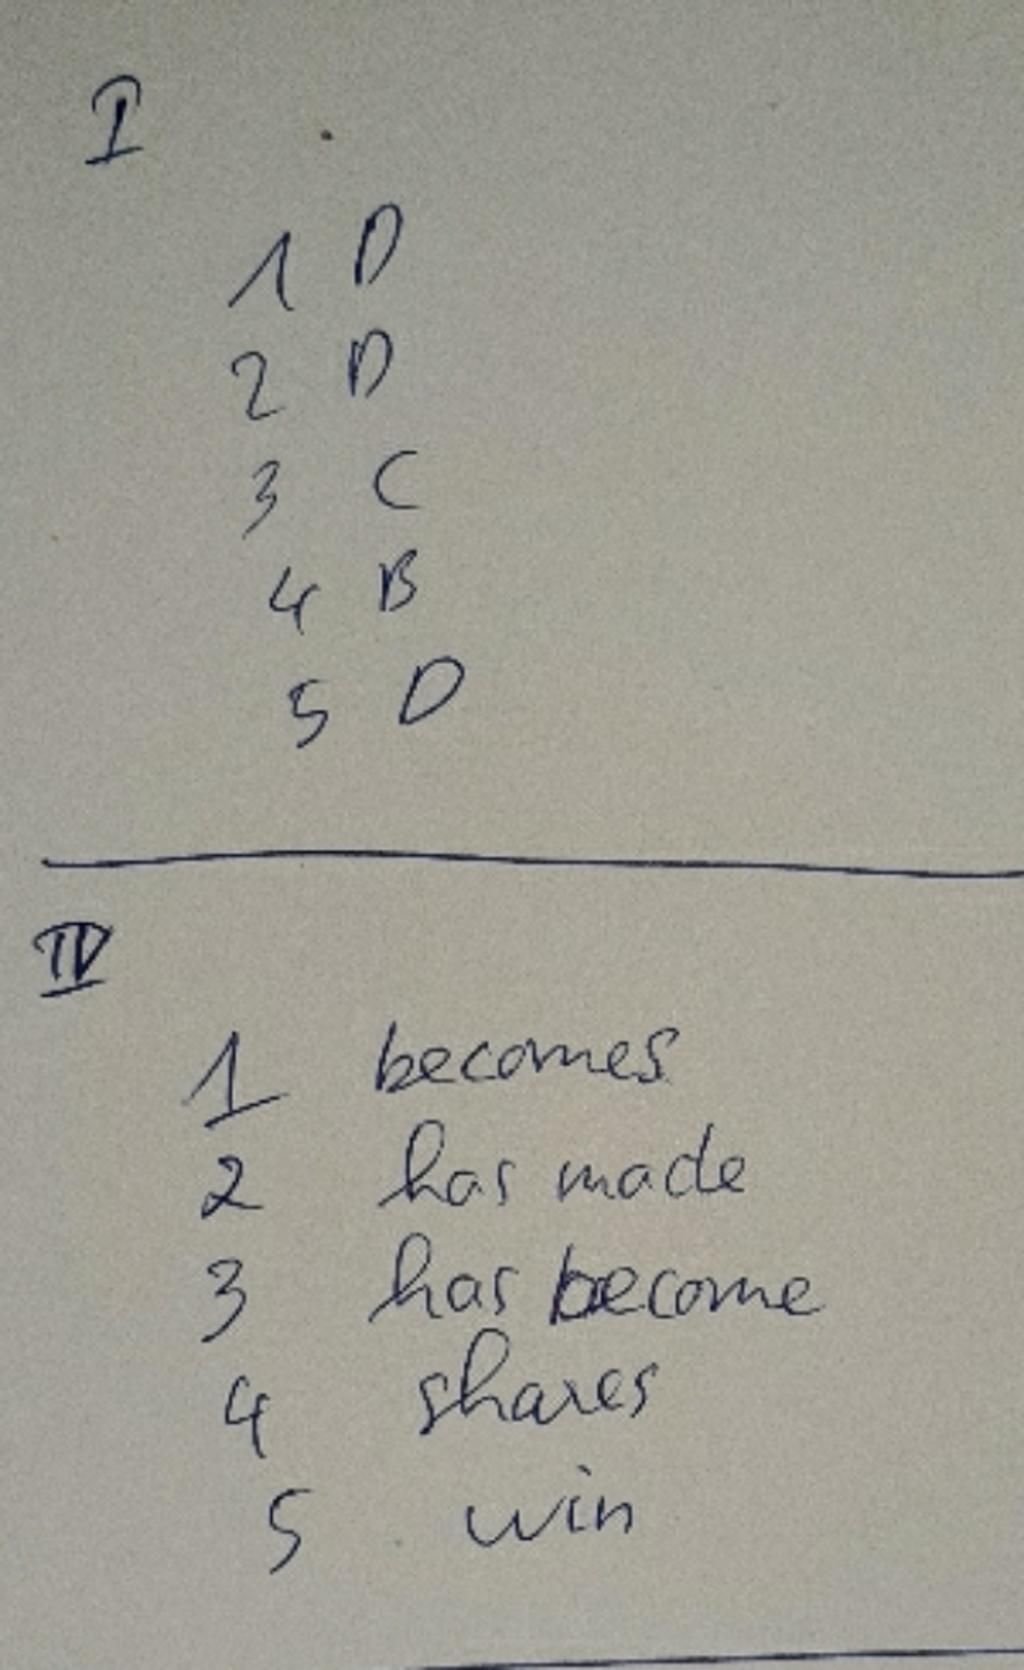 I
1 D
2 D
3 C
4 B
5 D
IV
1 becomes
2 has made
3 has become
4 shares
5 win